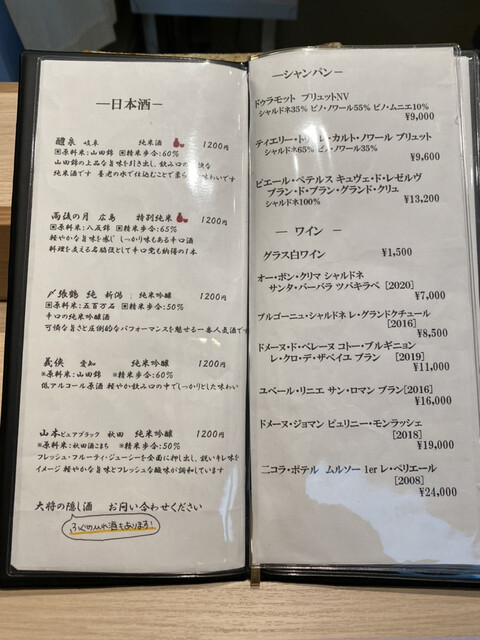 ―日本酒―
醴泉 岐阜 純米酒 1200円
※原料米:山田錦 ※精米歩合:60%
山田錦の上品な旨味を引き出し、飲み口の
純米酒です 養老の水で仕込むことで柔ら 味わいです
雨後の月 広島 特別純米 1200円
※原料米:八反錦 ※精米歩合:65%
軽やかな旨味を感じ しっかり味もある辛口酒
料理を支える名脇役として辛口党も納得の1本
〆張鶴 純 新潟 純米吟醸 1200円
※原料米:五百万石 ※精米歩合:50%
辛口の純米吟醸酒
可憐な旨さと圧倒的なパフォーマンスを魅せる一番人気酒です
義侠 愛知 純米吟醸 1200円
※原料米:山田錦 ※精米歩合:60%
低アルコール原酒 軽やか飲み口の中でしっかりとした味わい
山本ピュアブラック 秋田 純米吟醸 1200円
※原料米:秋田酒こまち ※精米歩合:50%
フレッシュ・フルーティ・ジューシーを全面に押し出し、鋭いキレ味を
イメージ 軽やかな旨味とフレッシュな酸味が調和しています
大将の隠し酒 お問い合わせください
ふぐのひれ酒もあります!
―シャンパン―
ドゥラモット ブリュットNV
シャルドネ35% ピノ・ノワール55% ピノ・ムニエ10%
¥9,000
ティエリー・ト カルト・ノワール ブリュット
シャルドネ65% ピノ・ノワール35%
¥9,600
ピエール・ペテルス キュヴェ・ド・レゼルヴ
ブラン・ド・ブラン・グランド・クリュ
シャルドネ100%
¥13,200
― ワイン ―
グラス白ワイン ¥1,500
オー・ボン・クリマ シャルドネ
サンタ・バーバラ ツバキラベ [2020]
¥7,000
ブルゴーニュ・シャルドネ レ・グランドクチュール
[2016]
¥8,500
ドメーヌ・ド・ベレーヌ コトー・ブルギニヨン
レ・クロ・デ・ザベイユ ブラン [2019]
¥11,000
ユベール・リニエ サン・ロマン ブラン[2016]
¥16,000
ドメーヌ・ジョマン ピュリニー・モンラッシェ
[2018]
¥19,000
ニコラ・ポテル ムルソー 1er レ・ペリエール
[2008]
¥24,000